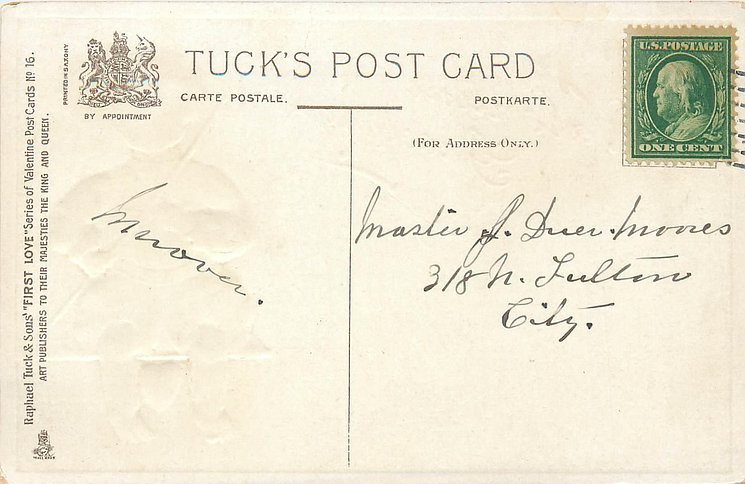 TUCK'S POST CARD
CARTE POSTALE.
POSTKARTE.
(FOR ADDRESS ONLY.)
BY APPOINTMENT
PRINTED IN SAXONY
Raphael Tuck & Sons' "FIRST LOVE" Series of Valentine Post Cards No 16.
ART PUBLISHERS TO THEIR MAJESTIES THE KING AND QUEEN.
U.S. POSTAGE
ONE CENT
Master J. Duer Moores
318 N. Fulton
City.